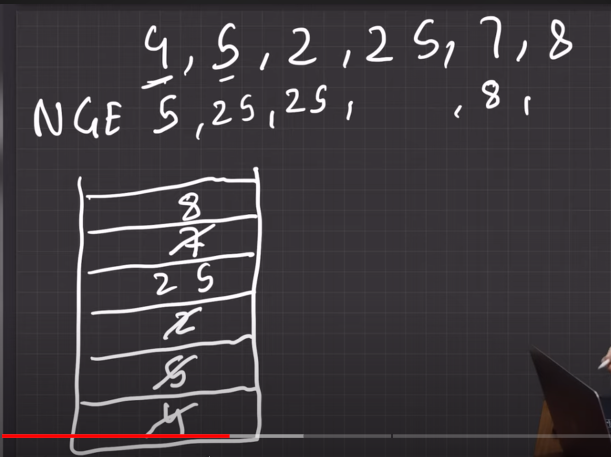 4, 5, 2, 25, 7, 8
NGE 5, 25, 25, , 8,
8
7
25
2
5
4